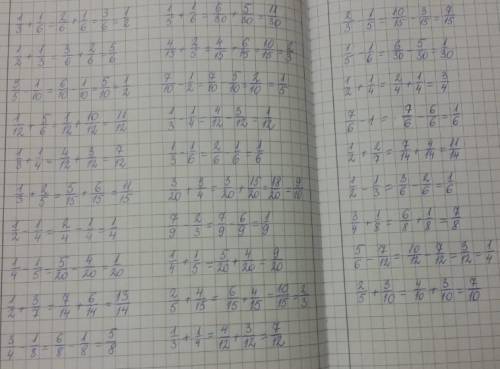 1/3 + 1/6 = 2/6 + 1/6 = 3/6 = 1/2
1/2 + 1/3 = 3/6 + 2/6 = 5/6
3/5 - 1/10 = 6/10 - 1/10 = 5/10 = 1/2
1/12 + 5/6 = 1/12 + 10/12 = 11/12
1/3 + 1/4 = 4/12 + 3/12 = 7/12
1/3 + 2/5 = 5/15 + 6/15 = 11/15
1/2 - 1/4 = 2/4 - 1/4 = 1/4
1/4 - 1/5 = 5/20 - 4/20 = 1/20
1/2 + 3/7 = 7/14 + 6/14 = 13/14
3/4 - 1/8 = 6/8 - 1/8 = 5/8
1/5 + 1/6 = 6/30 + 5/30 = 11/30
4/15 + 2/5 = 4/15 + 6/15 = 10/15 = 2/3
7/10 - 1/2 = 7/10 - 5/10 = 2/10 = 1/5
1/3 - 1/4 = 4/12 - 3/12 = 1/12
1/3 - 1/6 = 2/6 - 1/6 = 1/6
3/20 + 3/4 = 3/20 + 15/20 = 18/20 = 9/10
7/9 - 2/3 = 7/9 - 6/9 = 1/9
1/4 + 1/5 = 5/20 + 4/20 = 9/20
2/5 + 4/15 = 6/15 + 4/15 = 10/15 = 2/3
1/3 + 1/4 = 4/12 + 3/12 = 7/12
2/3 - 1/5 = 10/15 - 3/15 = 7/15
1/5 - 1/6 = 6/30 - 5/30 = 1/30
1/2 + 1/4 = 2/4 + 1/4 = 3/4
7/6 - 1 = 7/6 - 6/6 = 1/6
1/2 + 2/7 = 7/14 + 4/14 = 11/14
1/2 - 1/3 = 3/6 - 2/6 = 1/6
3/4 + 1/8 = 6/8 + 1/8 = 7/8
5/6 - 7/12 = 10/12 - 7/12 = 3/12 = 1/4
2/5 + 3/10 = 4/10 + 3/10 = 7/10